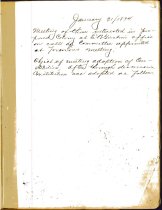 January 21/1874
Meeting of those interested in pro-
posed Colony at E B Graham office
on call of Committee appointed
at previous meeting.
Object of meeting adoption of Con-
stitution. After thorough discussion
Constitution was adopted as follow